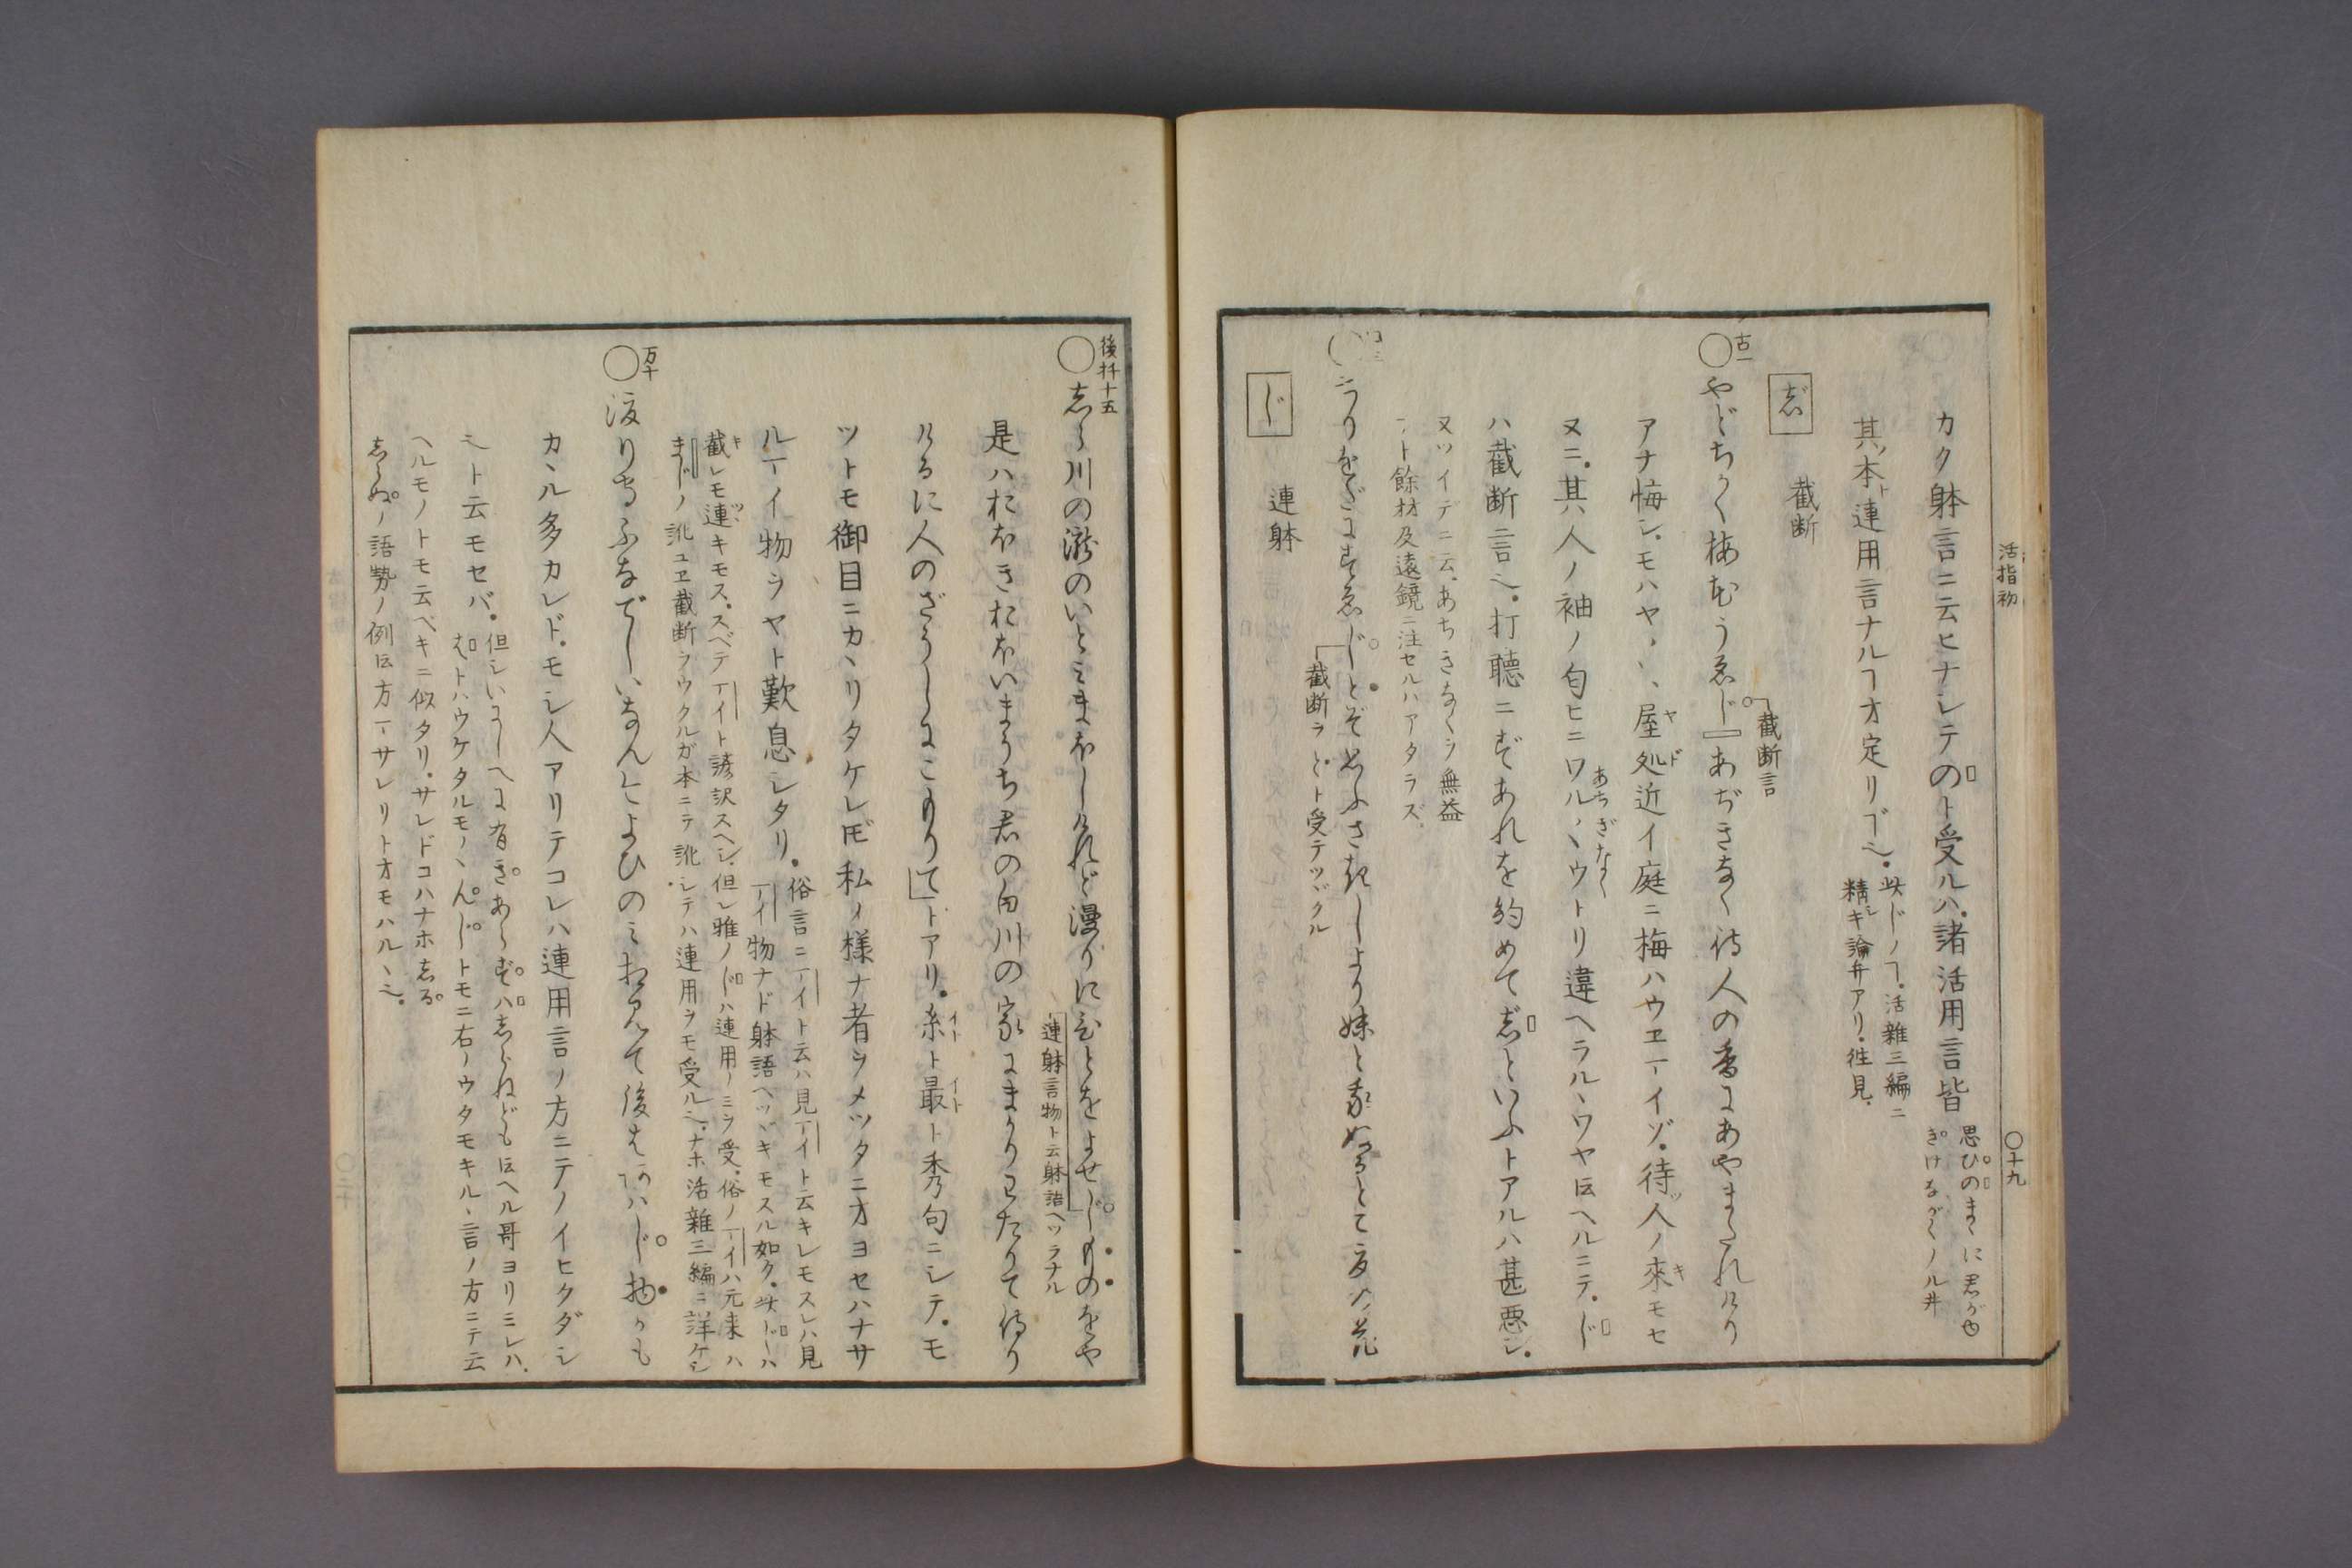 活指初
○十九
カク躰言ニ云ヒナシテのト受ルハ諸活用言皆
思ひのまゝに君が
きけながらノル井
其本連用言ナルヿヲ定リゴシ
此じノヿ活雜三編ニ
精キ論弁アリ往見
じ 截断
古一
○やどちかく梅むうゑじあぢきなく待人の香にあやまたれけり
截断言
アナ悔シモハヤヽヽ屋処近イ庭ニ梅ハウヱーイゾ待人ノ來モセ
ヤド
又ニ其人ノ袖ノ匂ヒニワルヽウトリ違ヘラルヽワヤトニヘルニテじ
あぢきなく
ハ截断言也打聴ニずあれを約めてじといふトアルハ甚悪シ
又ツイデニ云あちきなくヲ無益
ート餘材及遠鏡ニ注セルハアタラズ
うりをだにすゑじとぞ思ふさきしより妹と我ぬるとこ夏の花
截断ヲとト受テツヾクル
じ 連躰
後材十五
○志ら川の瀧のいとみまほしけれど漫りに人をよせじものをや
連躰言物ト云躰語ヘツラナル
是ハおほきおほいまうち君の白川の家にまかりわたりて侍り
けるに人のざうしにこもりてトアリ糸ト最ト秀句ニシテモ
イト イト
ツトモ御目ニカヽリタケレド私ノ様ナ者ヲメツタニオヨセハナサ
ルーイ物ヲヤト歎息シタリ
俗言ニーイト云ハ見ーイト云キレモスレハ見
ーイ物ナド躰語ヘツヾキモスル如ク此じハ
截レモ連キモススベテーイト譯スヘシ但シ雅ノじハ連用ノミヲ受俗ノーイハ元来ハ
まじノ訛ユヱ截断ヲウクルガ本ニテ訛シテハ連用ヲモ受ル也ナホ活雜三編ニ詳ケシ
万十
○渡りもりふなでしいなんこよひのみ相見て後はあはじ物かも
カヽル多カレドモシ人アリテコレハ連用言ノ方ニテノイヒクダシ
也ト云モセバ
但シいにしへに有きあらずハ志らねどもトヘル哥ヨリミレハ
むトハウケタルモノヽんじトモニ右ノウタモキルヽ言ノ方ニテ云
ヘルモノトモ云ベキニ似タリサレドコハナホ志る
志らぬノ語勢ノ例ト方ーサレリトオモハルヽ也